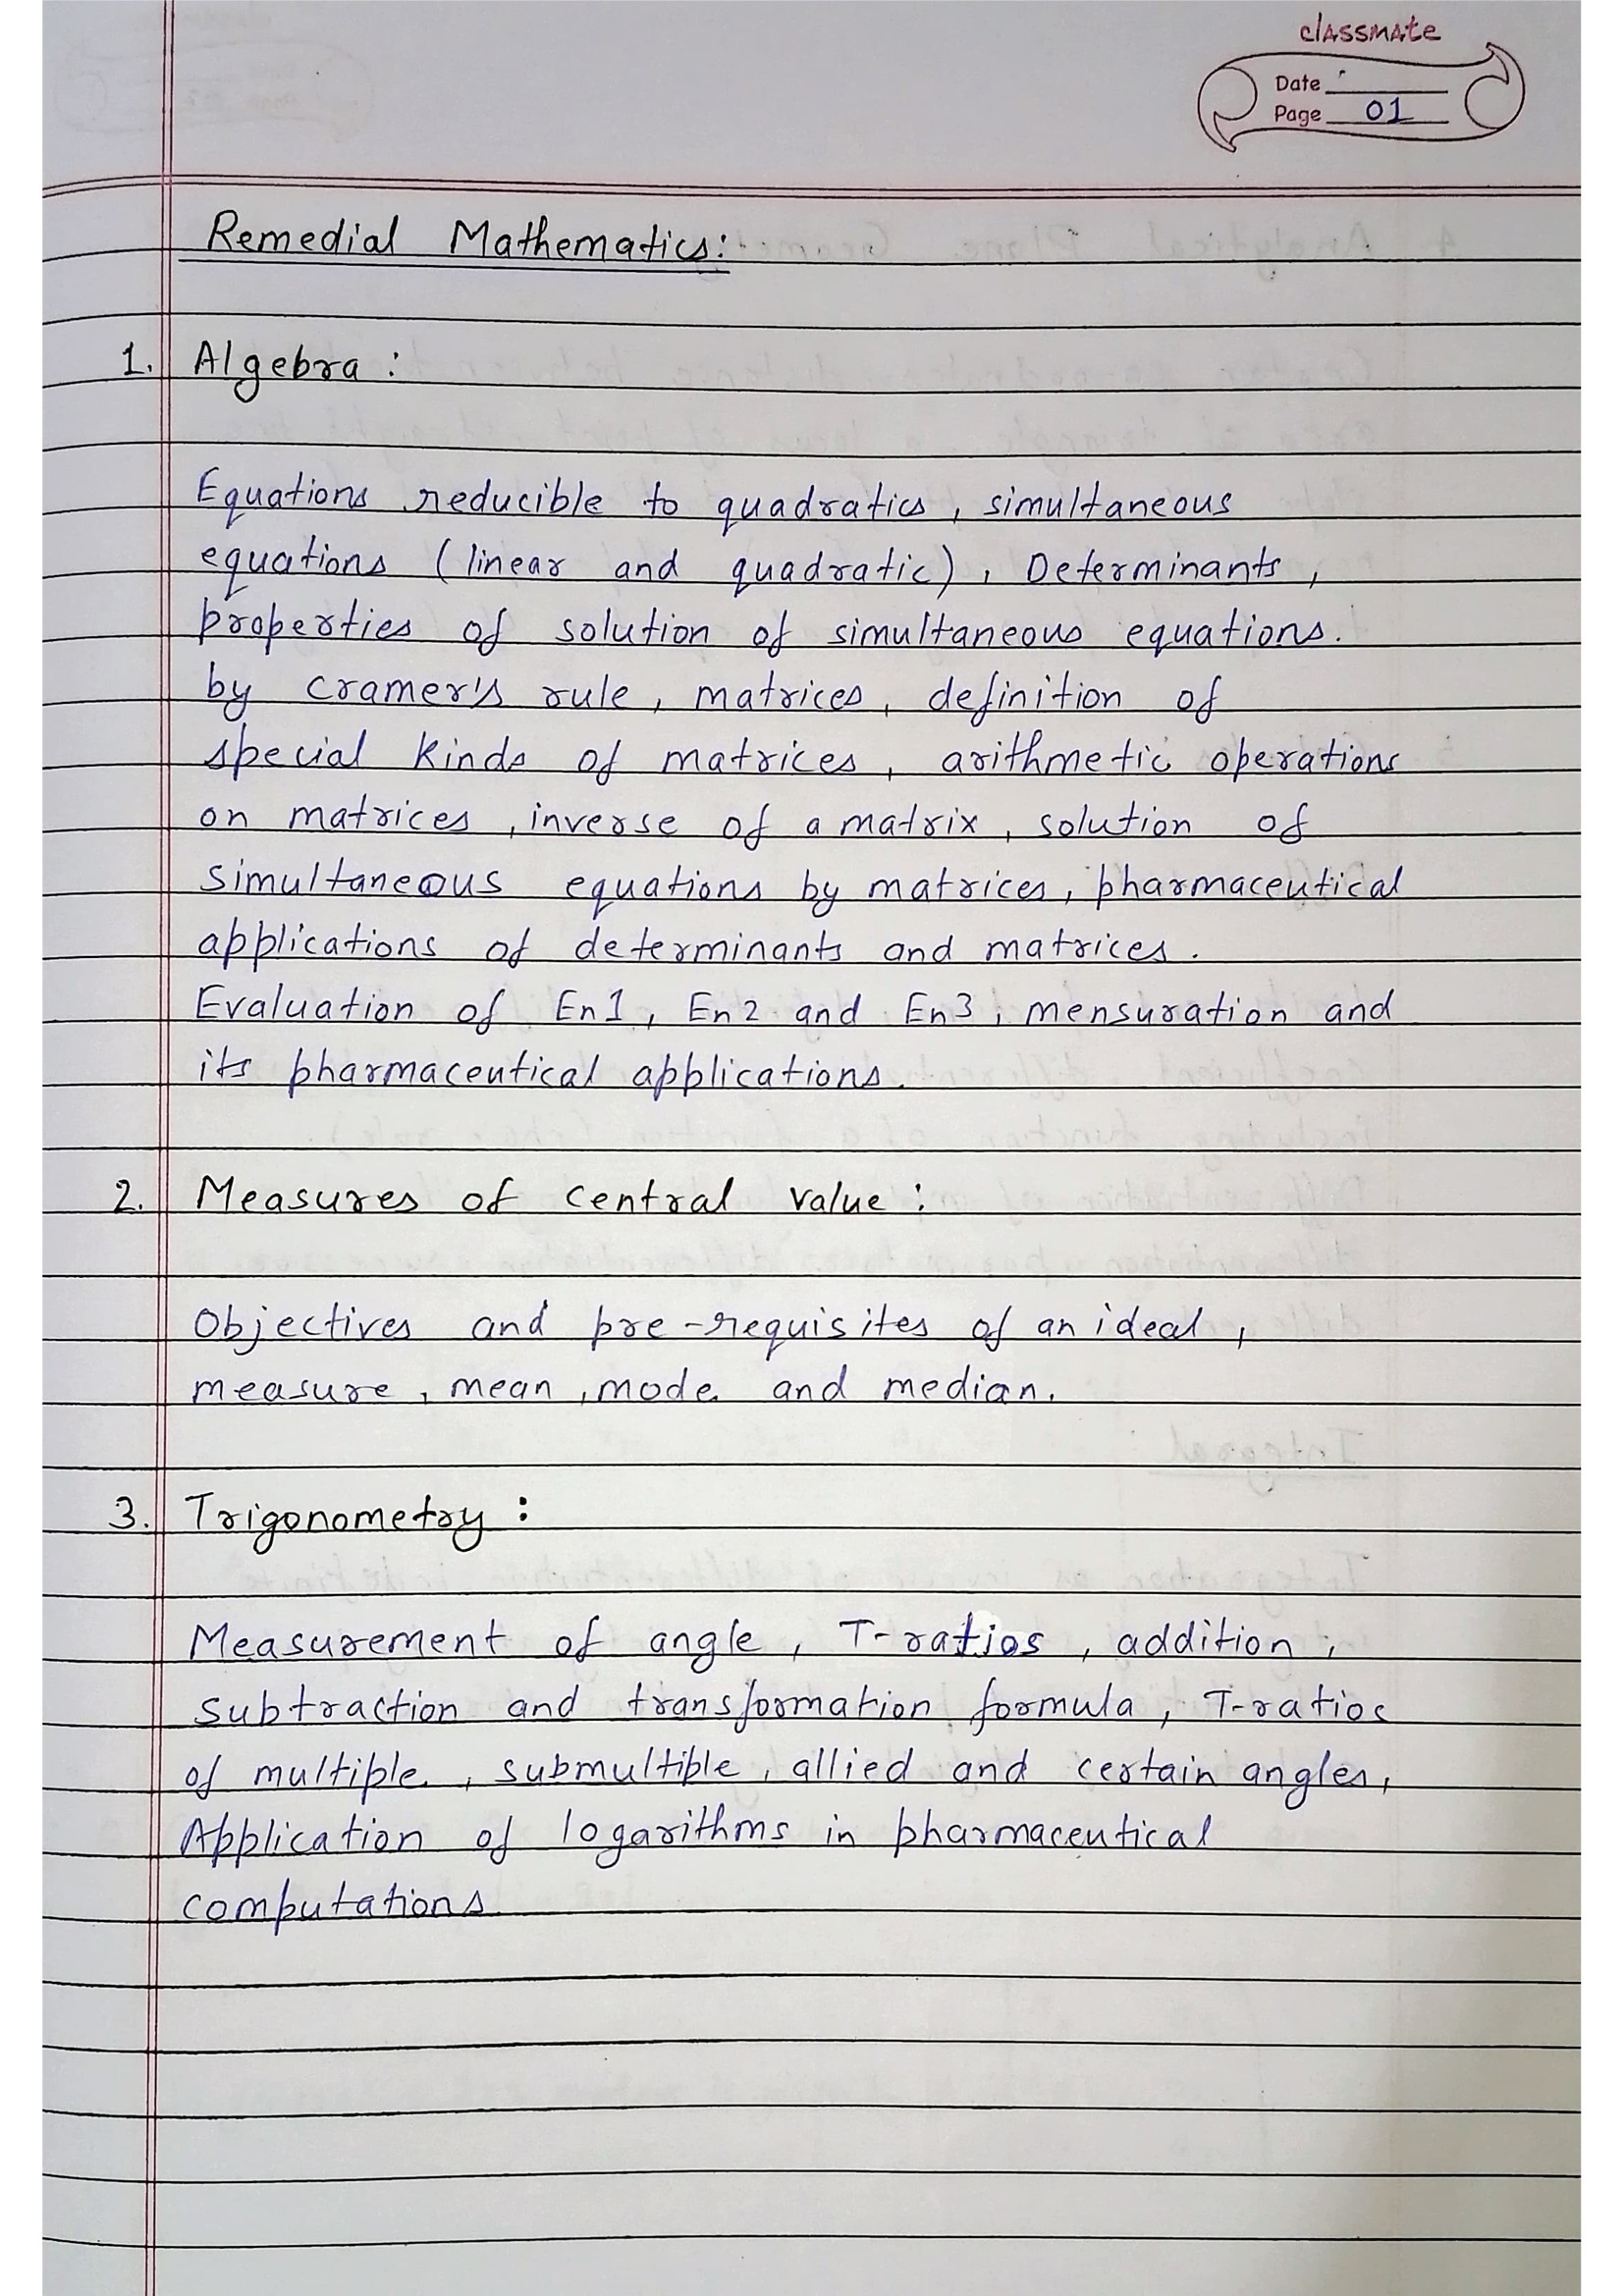 classmate
Date
Page 01
Remedial Mathematics:
1. Algebra :
Equations reducible to quadratics, simultaneous
equations (linear and quadratic), Determinants,
properties of solution of simultaneous equations.
by cramer's rule, matrices, definition of
special kinds of matrices, arithmetic operations
on matrices, inverse of a matrix, solution of
simultaneous equations by matrices, pharmaceutical
applications of determinants and matrices.
Evaluation of En1, En2 and En3, mensuration and
its pharmaceutical applications.
2. Measures of central value :
Objectives and pre-requisites of an ideal,
measure, mean, mode and median.
3. Trigonometry :
Measurement of angle, T-ratios, addition,
subtraction and transformation formula, T-ratios
of multiple, submultiple, allied and certain angles,
Application of logarithms in pharmaceutical
computations